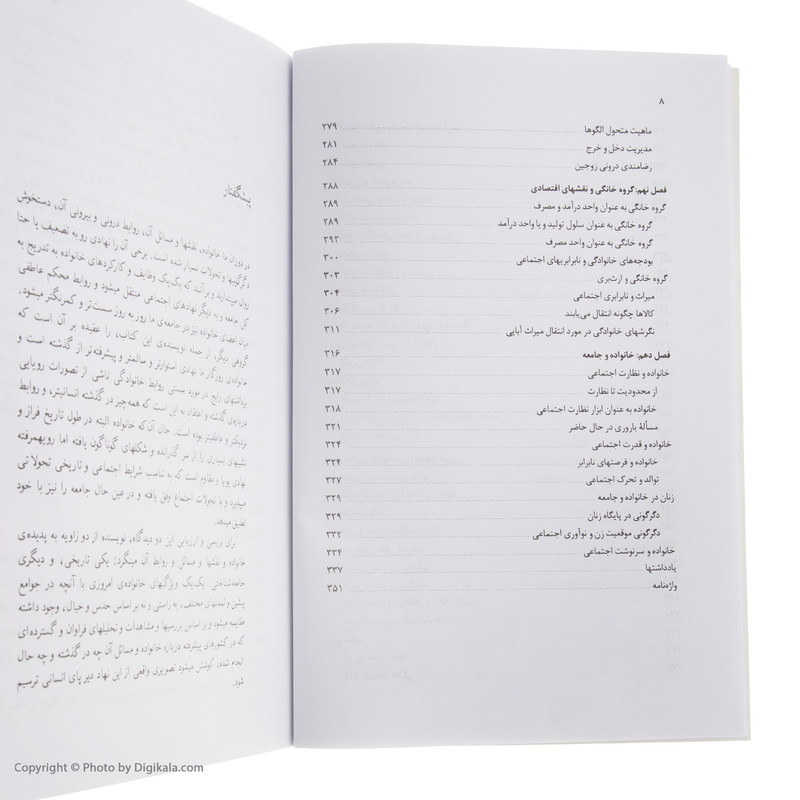 ۸
ماهیت متحول الگوها ۲۷۹
مدیریت دخل و خرج ۲۸۱
رضامندی درونی زوجین ۲۸۴
فصل نهم: گروه خانگی و نقشهای اقتصادی ۲۸۸
گروه خانگی به عنوان واحد درآمد و مصرف ۲۸۹
گروه خانگی به عنوان سلول تولید و یا واحد درآمد ۲۸۹
گروه خانگی به عنوان واحد مصرف ۲۹۲
بودجه‌های خانوادگی و نابرابریهای اجتماعی ۳۰۰
گروه خانگی و ارث‌بری ۳۰۳
میراث و نابرابری اجتماعی ۳۰۴
کالاها چگونه انتقال می‌یابند ۳۰۶
نگرشهای خانوادگی در مورد انتقال میراث آبایی ۳۱۱
فصل دهم: خانواده و جامعه ۳۱۶
خانواده و نظارت اجتماعی ۳۱۷
از محدودیت تا نظارت ۳۱۷
خانواده به عنوان ابزار نظارت اجتماعی ۳۱۸
مسألهٔ باروری در حال حاضر ۳۲۱
خانواده و قدرت اجتماعی ۳۲۴
خانواده و فرصتهای نابرابر ۳۲۴
توالد و تحرک اجتماعی ۳۲۷
زنان در خانواده و جامعه ۳۲۹
دگرگونی در پایگاه زنان ۳۲۹
دگرگونی موقعیت زن و نوآوری اجتماعی ۳۳۲
خانواده و سرنوشت اجتماعی ۳۳۴
یادداشتها ۳۳۷
واژه‌نامه ۳۵۱
پیشگفتار
در دوران ما خانواده، نقشها و مسائل آن، روابط درونی و بیرونی آن، دستخوش
دگرگونیها و تحولات بسیار شده است. برخی آن را نهادی رو به تضعیف یا حتا
زوال میپندارند و بر آنند که یک‌یک وظایف و کارکردهای خانواده به تدریج به
کل جامعه و به دیگر نهادهای اجتماعی منتقل میشود و روابط محکم عاطفی
میان اعضای خانواده نیز در جامعه‌ی ما روز به روز سست‌تر و کمرنگتر میشود.
گروهی دیگر، از جمله نویسنده‌ی این کتاب، را عقیده بر آن است که
خانواده‌ی روزگار ما نهادی استوارتر و سالمتر و پیشرفته‌تر از گذشته است و
برداشتهای رایج در مورد سستی روابط خانوادگی ناشی از تصورات رویایی
درباره‌ی گذشته و اعتقاد به این است که همه‌چیز در گذشته انسانیتر، و روابط
نزدیکتر و عاطفیتر بوده است. حال آن که خانواده البته در طول تاریخ فراز و
نشیبهای بسیاری را از سر گذرانده و شکلهای گوناگون یافته اما رویهمرفته
نهادی پویا و مقاوم است که به تناسب شرایط اجتماعی و تاریخی تحولاتی
میپذیرد و با تحولات اجتماع وفق یافته و در عین حال جامعه را نیز با خود
تطبیق میدهد.
برای بررسی و ارزیابی این دو دیدگاه، نویسنده از دو زاویه به پدیده‌ی
خانواده و نقشها و مسائل و روابط آن مینگرد: یکی تاریخی، و دیگری
جامعه‌شناختی. یک‌یک ویژگیهای خانواده‌ی امروزی با آنچه در جوامع
پیشین و تمدنهای مختلف، به راستی و نه بر اساس حدس و خیال، وجود داشته
مقایسه میشود و بر اساس بررسیها و مشاهدات و تحلیلهای فراوان و گسترده‌ای
که در کشورهای پیشرفته درباره خانواده و مسائل آن چه در گذشته و چه حال
انجام شده، کوشش میشود تصویری واقعی از این نهاد دیرپای انسانی ترسیم
شود.
Copyright © Photo by Digikala.com